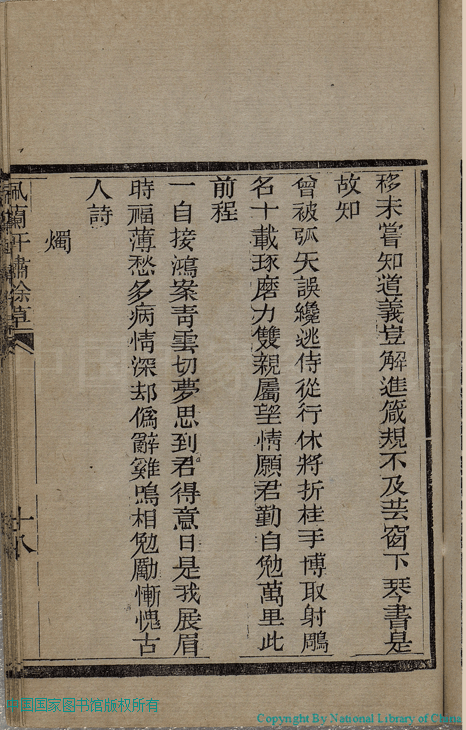 移未嘗知道義豈解進箴規不及芸窗下琴書是
故知
曾被弧矢誤纔逃侍從行休將折桂手博取射鵰
名十載琢磨力雙親屬望情願君勤自勉萬里此
前程
一自接鴻案青雲切夢思到君得意日是我展眉
時福薄愁多病情深却僞辭雞鳴相勉勵慚愧古
人詩
燭
佩蘭軒繡餘草
十八
中国国家图书馆版权所有
Copyright By National Library of China